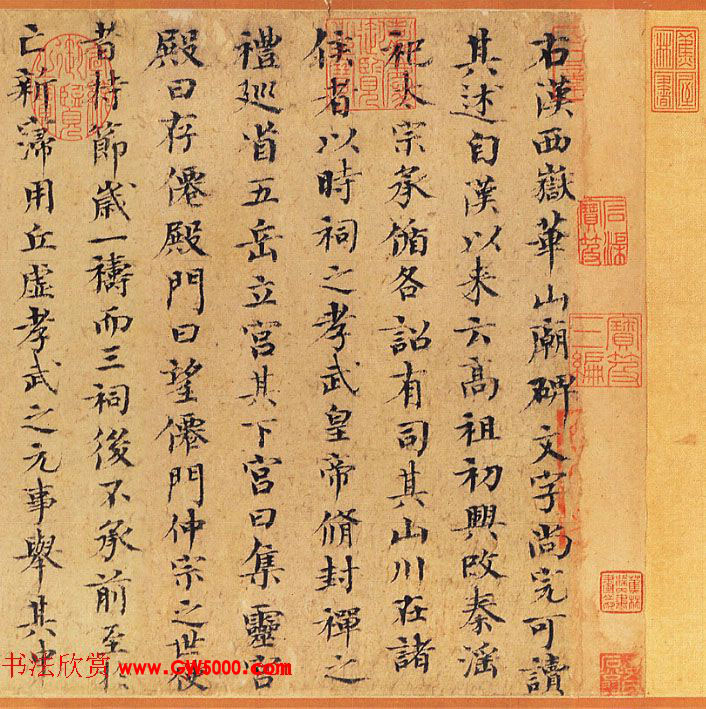 右漢西嶽華山廟碑文字尚完可讀
其述自漢以来云高祖初興改秦滛
祀太宗承循各詔有司其山川在諸
侯者以時祠之孝武皇帝脩封禪之
禮巡省五岳立宮其下宮曰集靈宮
殿曰存僊殿門曰望僊門仲宗之世使
者持節歲一禱而三祠後不承前至於
亡新寖用丘虛孝武之元事舉其中
蕉林書屋
寶笈三編
书法欣赏 www.GW5000.com